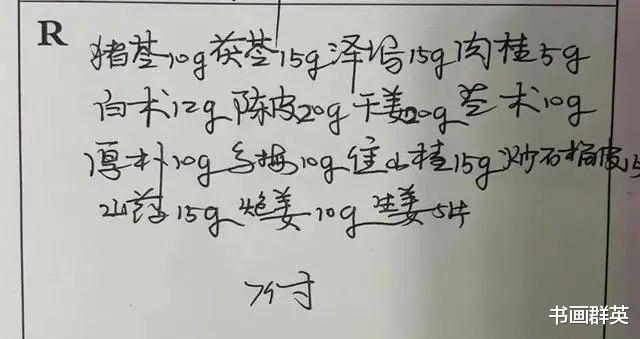 R
猪苓10g茯苓15g泽泻15g肉桂5g
白术12g陈皮20g干姜20g苍术10g
厚朴10g乌梅10g焦山楂15g炒石榴皮15
山药15g炮姜10g生姜5片
7付
书画群英